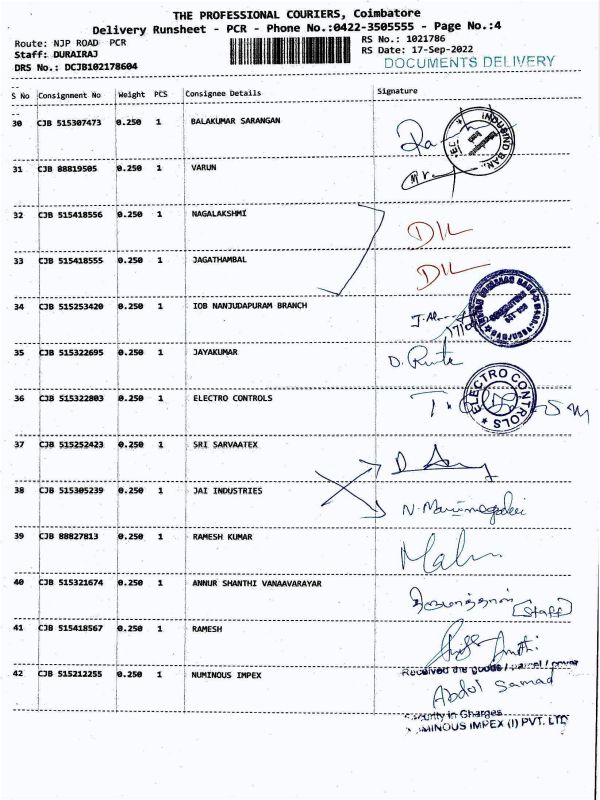 THE PROFESSIONAL COURIERS, Coimbatore
Delivery Runsheet - PCR - Phone No.:0422-3505555 - Page No.:4
Route: NJP ROAD PCR
RS No.: 1021786
Staff: DURAIRAJ
RS Date: 17-Sep-2022
DRS No.: DCJB102178604
DOCUMENTS DELIVERY
S No Consignment No Weight PCS Consignee Details Signature
30 CJB 515307473 0.250 1 BALAKUMAR SARANGAN
31 CJB 88819505 0.250 1 VARUN
32 CJB 515418556 0.250 1 NAGALAKSHMI
33 CJB 515418555 0.250 1 JAGATHAMBAL
34 CJB 515253420 0.250 1 IOB NANJUDAPURAM BRANCH
35 CJB 515322695 0.250 1 JAYAKUMAR
36 CJB 515322803 0.250 1 ELECTRO CONTROLS
ELECTRO CONTROLS
37 CJB 515252423 0.250 1 SRI SARVAATEX
38 CJB 515305239 0.250 1 JAI INDUSTRIES
39 CJB 88827813 0.250 1 RAMESH KUMAR
40 CJB 515321674 0.250 1 ANNUR SHANTHI VANAAVARAYAR
[Staff]
41 CJB 515418567 0.250 1 RAMESH
Received the goods / parcel /
42 CJB 515212255 0.250 1 NUMINOUS IMPEX
Abdol Samad
Security in Charges
NUMINOUS IMPEX (I) PVT. LTD